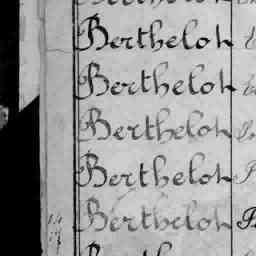 Berthelot
Berthelot
Berthelot
Berthelot
Berthelot